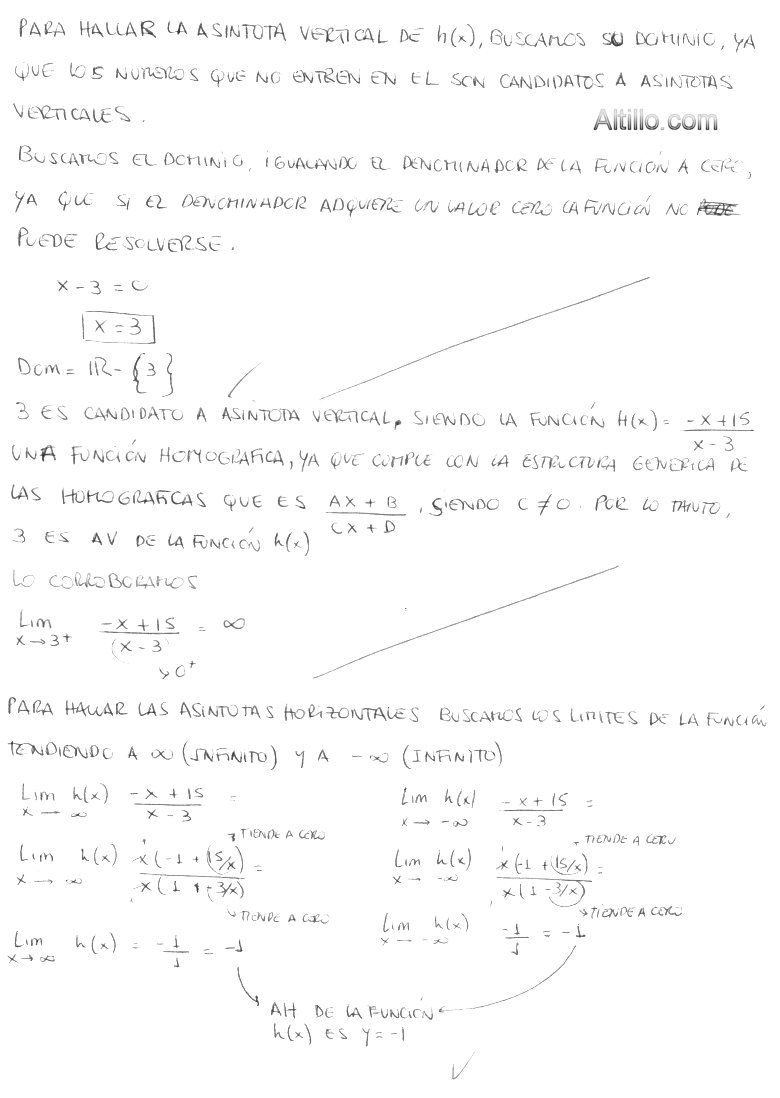 PARA HALLAR LA ASINTOTA VERTICAL DE h(x), BUSCAMOS SU DOMINIO, YA
QUE LOS NUMEROS QUE NO ENTREN EN EL SON CANDIDATOS A ASINTOTAS
VERTICALES.
Altillo.com
BUSCAMOS EL DOMINIO, IGUALANDO EL DENOMINADOR DE LA FUNCIÓN A CERO,
YA QUE SI EL DENOMINADOR ADQUIERE UN VALOR CERO LA FUNCIÓN NO
PUEDE RESOLVERSE.
x - 3 = 0
x = 3
Dom = IR - {3}
3 ES CANDIDATO A ASINTOTA VERTICAL, SIENDO LA FUNCIÓN H(x) = (-x + 15)/(x - 3)
UNA FUNCIÓN HOMOGRAFICA, YA QUE CUMPLE CON LA ESTRUCTURA GENERICA DE
LAS HOMOGRAFICAS QUE ES (AX + B)/(CX + D), SIENDO C ≠ 0. POR LO TANTO,
3 ES AV DE LA FUNCIÓN h(x)
LO CORROBORAMOS
Lim x → 3⁺ (-x + 15)/(x - 3) = ∞
→ 0⁺
PARA HALLAR LAS ASINTOTAS HORIZONTALES BUSCAMOS LOS LIMITES DE LA FUNCIÓN
TENDIENDO A ∞ (INFINITO) Y A -∞ (INFINITO)
Lim x → ∞ h(x) (-x + 15)/(x - 3) =
Lim x → -∞ h(x) (-x + 15)/(x - 3) =
TIENDE A CERO
TIENDE A CERO
Lim x → ∞ h(x) x(-1 + 15/x)/x(1 + -3/x) =
Lim x → -∞ h(x) x(-1 + 15/x)/x(1 - 3/x) =
TIENDE A CERO
TIENDE A CERO
Lim x → ∞ h(x) = -1/1 = -1
Lim x → -∞ h(x) -1/1 = -1
AH DE LA FUNCIÓN
h(x) ES y = -1